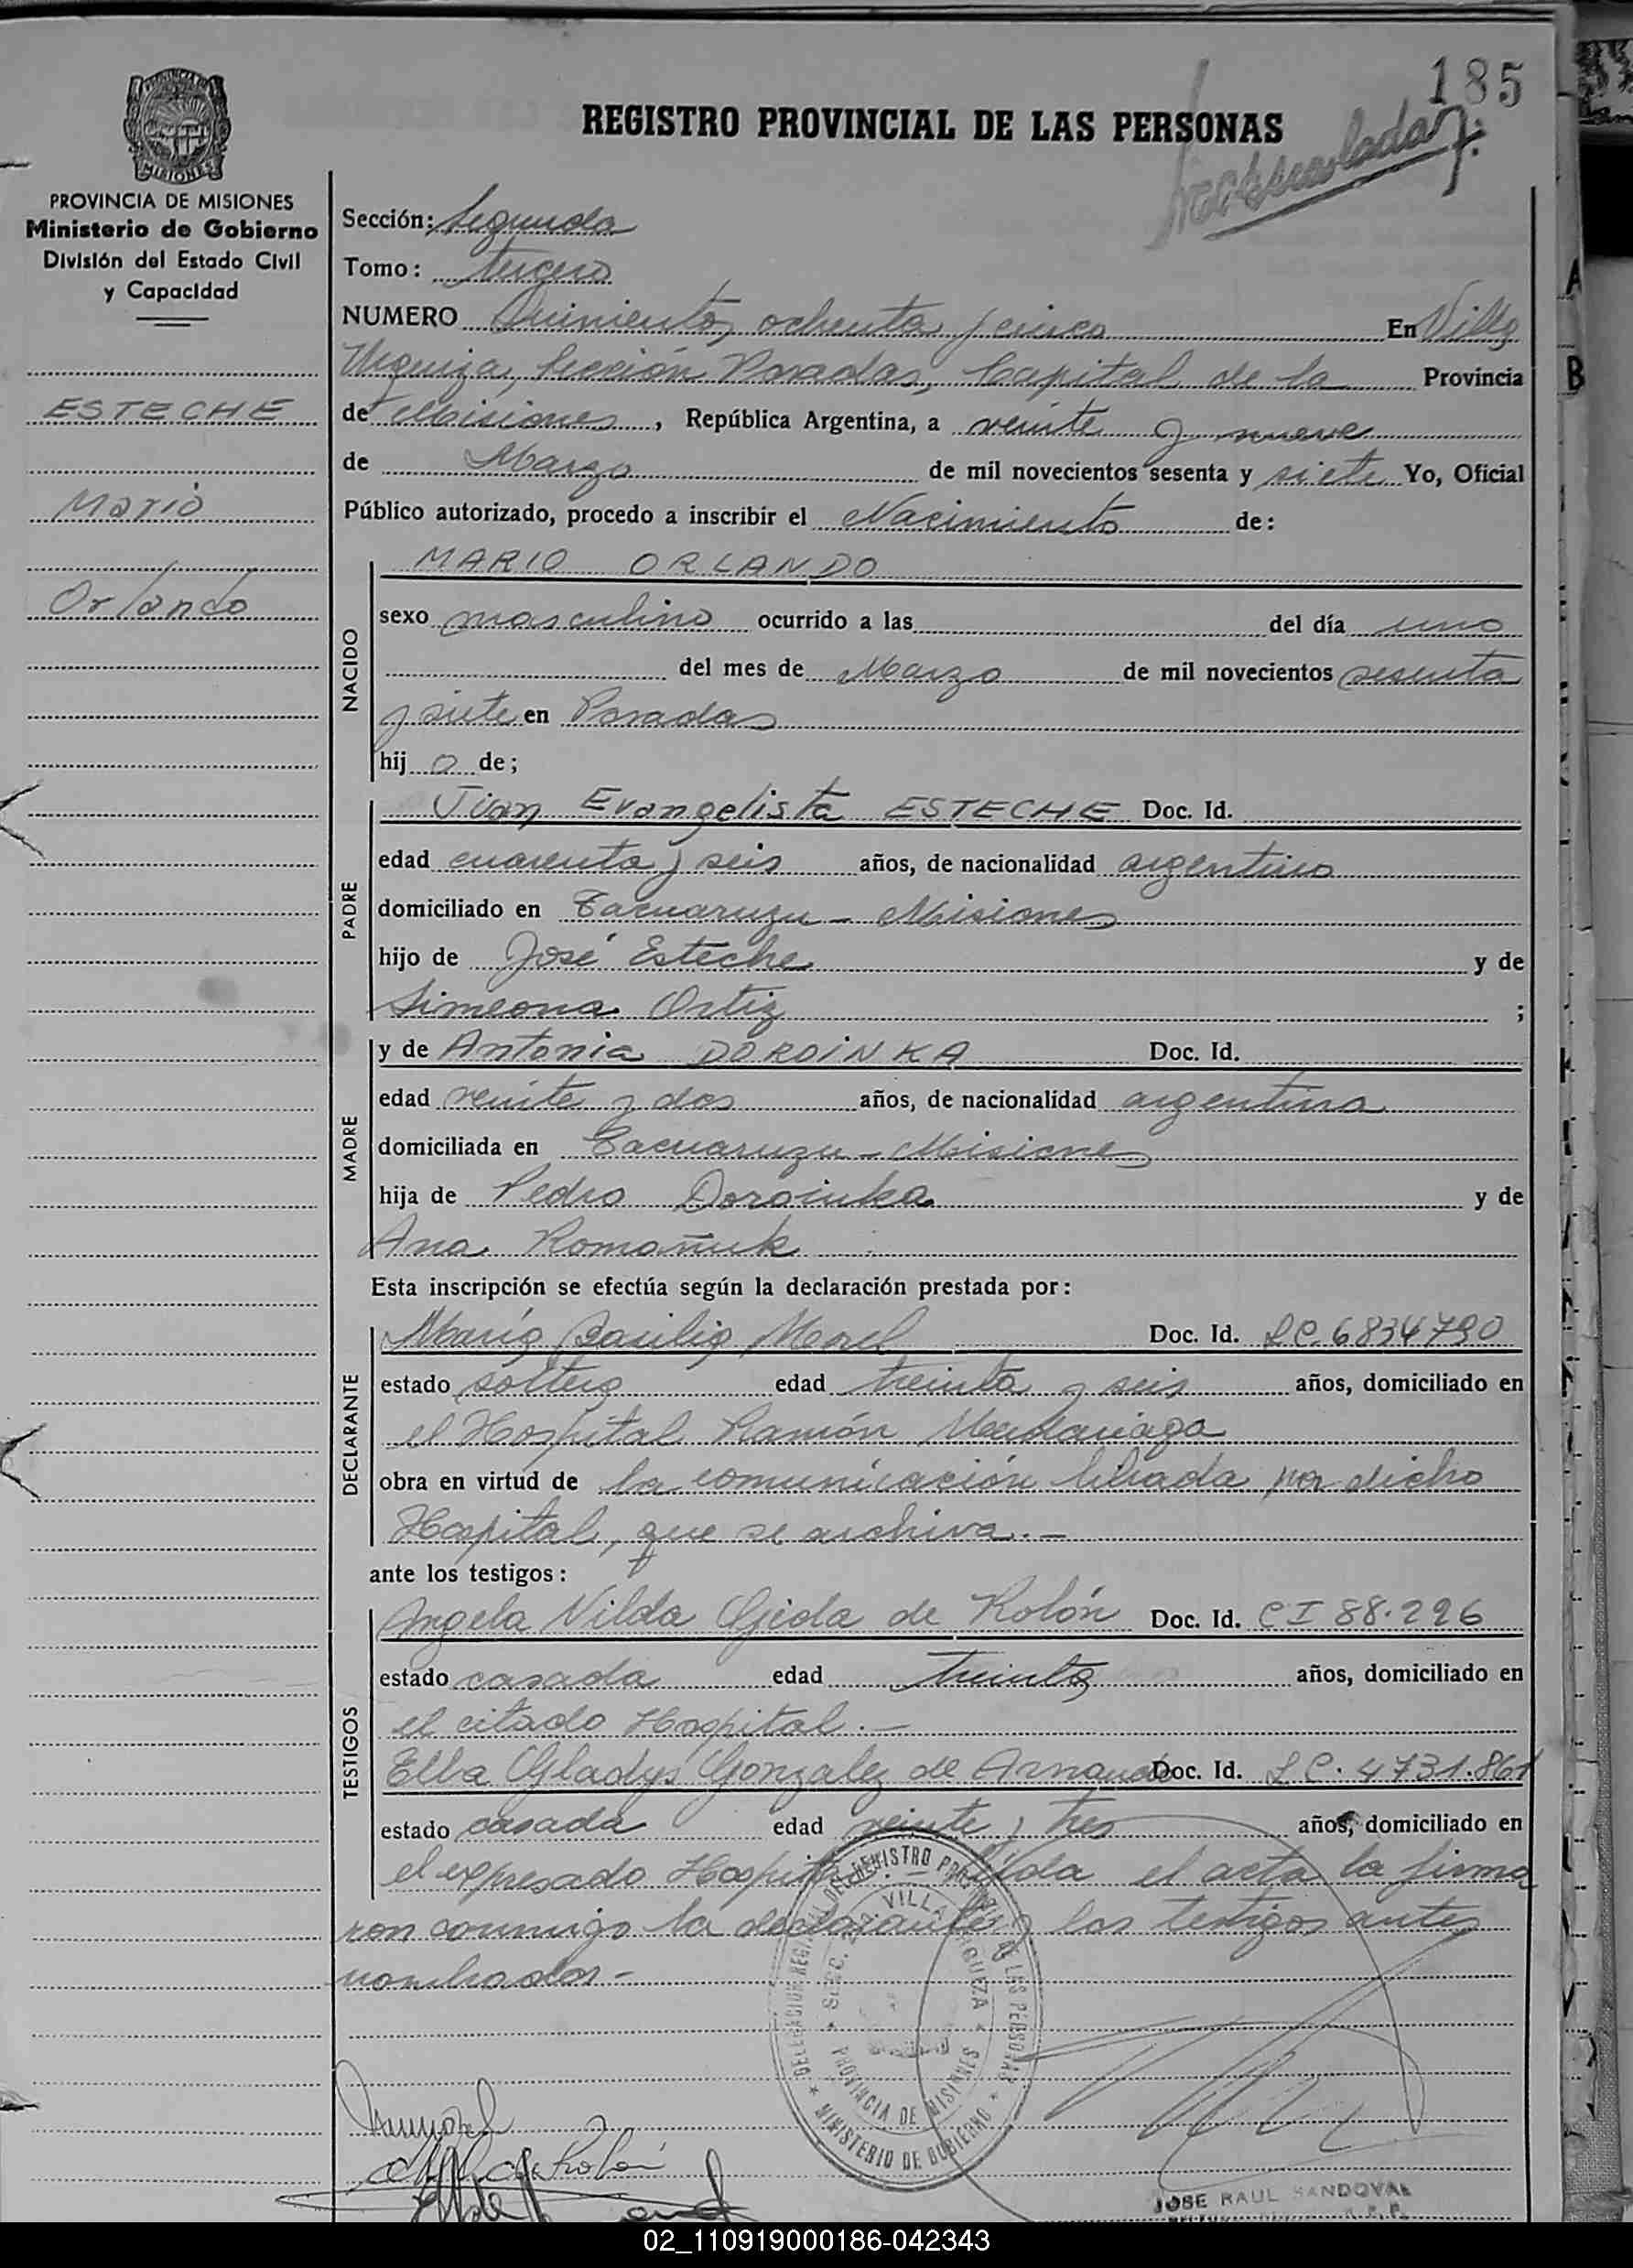 185
REGISTRO PROVINCIAL DE LAS PERSONAS
MISIONES
PROVINCIA DE MISIONES
Ministerio de Gobierno
División del Estado Civil
y Capacidad
ESTECHE
Mario
Orlando
Sección: Segunda
Tomo: tercero
NUMERO Quinientos ochenta y cinco En Villa
Urquiza, Sección Posadas, Capital de la Provincia
de Misiones, República Argentina, a veinte y nueve
de Marzo de mil novecientos sesenta y siete Yo, Oficial
Público autorizado, procedo a inscribir el Nacimiento de:
NACIDO
MARIO ORLANDO
sexo masculino ocurrido a las del día uno
del mes de Marzo de mil novecientos sesenta
y siete en Posadas
hij o de;
PADRE
Juan Evangelista ESTECHE Doc. Id.
edad cuarenta y seis años, de nacionalidad argentino
domiciliado en Tacuaruzu - Misiones
hijo de José Esteche y de
Simeona Ortiz ;
MADRE
y de Antonia DOROINKA Doc. Id.
edad veinte y dos años, de nacionalidad argentina
domiciliada en Tacuaruzu - Misiones
hija de Pedro Doroinka y de
Ana Romañuk
Esta inscripción se efectúa según la declaración prestada por:
DECLARANTE
María Basilia Morel Doc. Id. LC. 6834790
estado soltera edad treinta y seis años, domiciliado en
el Hospital Ramón Madariaga
obra en virtud de la comunicación librada por dicho
Hospital, que se archiva.-
ante los testigos:
TESTIGOS
Angela Nilda Ojeda de Rolón Doc. Id. CI 88.296
estado casada edad treinta años, domiciliado en
el citado Hospital.-
Elba Gladys Gonzalez de Doc. Id. LC. 4731.861
estado casada edad veinte y tres años, domiciliado en
el expresado Hospital.- Leída el acta la firma
ron conmigo la declarante y los testigos antes
nombrados-
REGISTRO PROVINCIAL DE LAS PERSONAS
VILLA URQUIZA
PROVINCIA DE MISIONES
MINISTERIO DE GOBIERNO
JOSE RAUL SANDOVAL
02_110919000186-042343